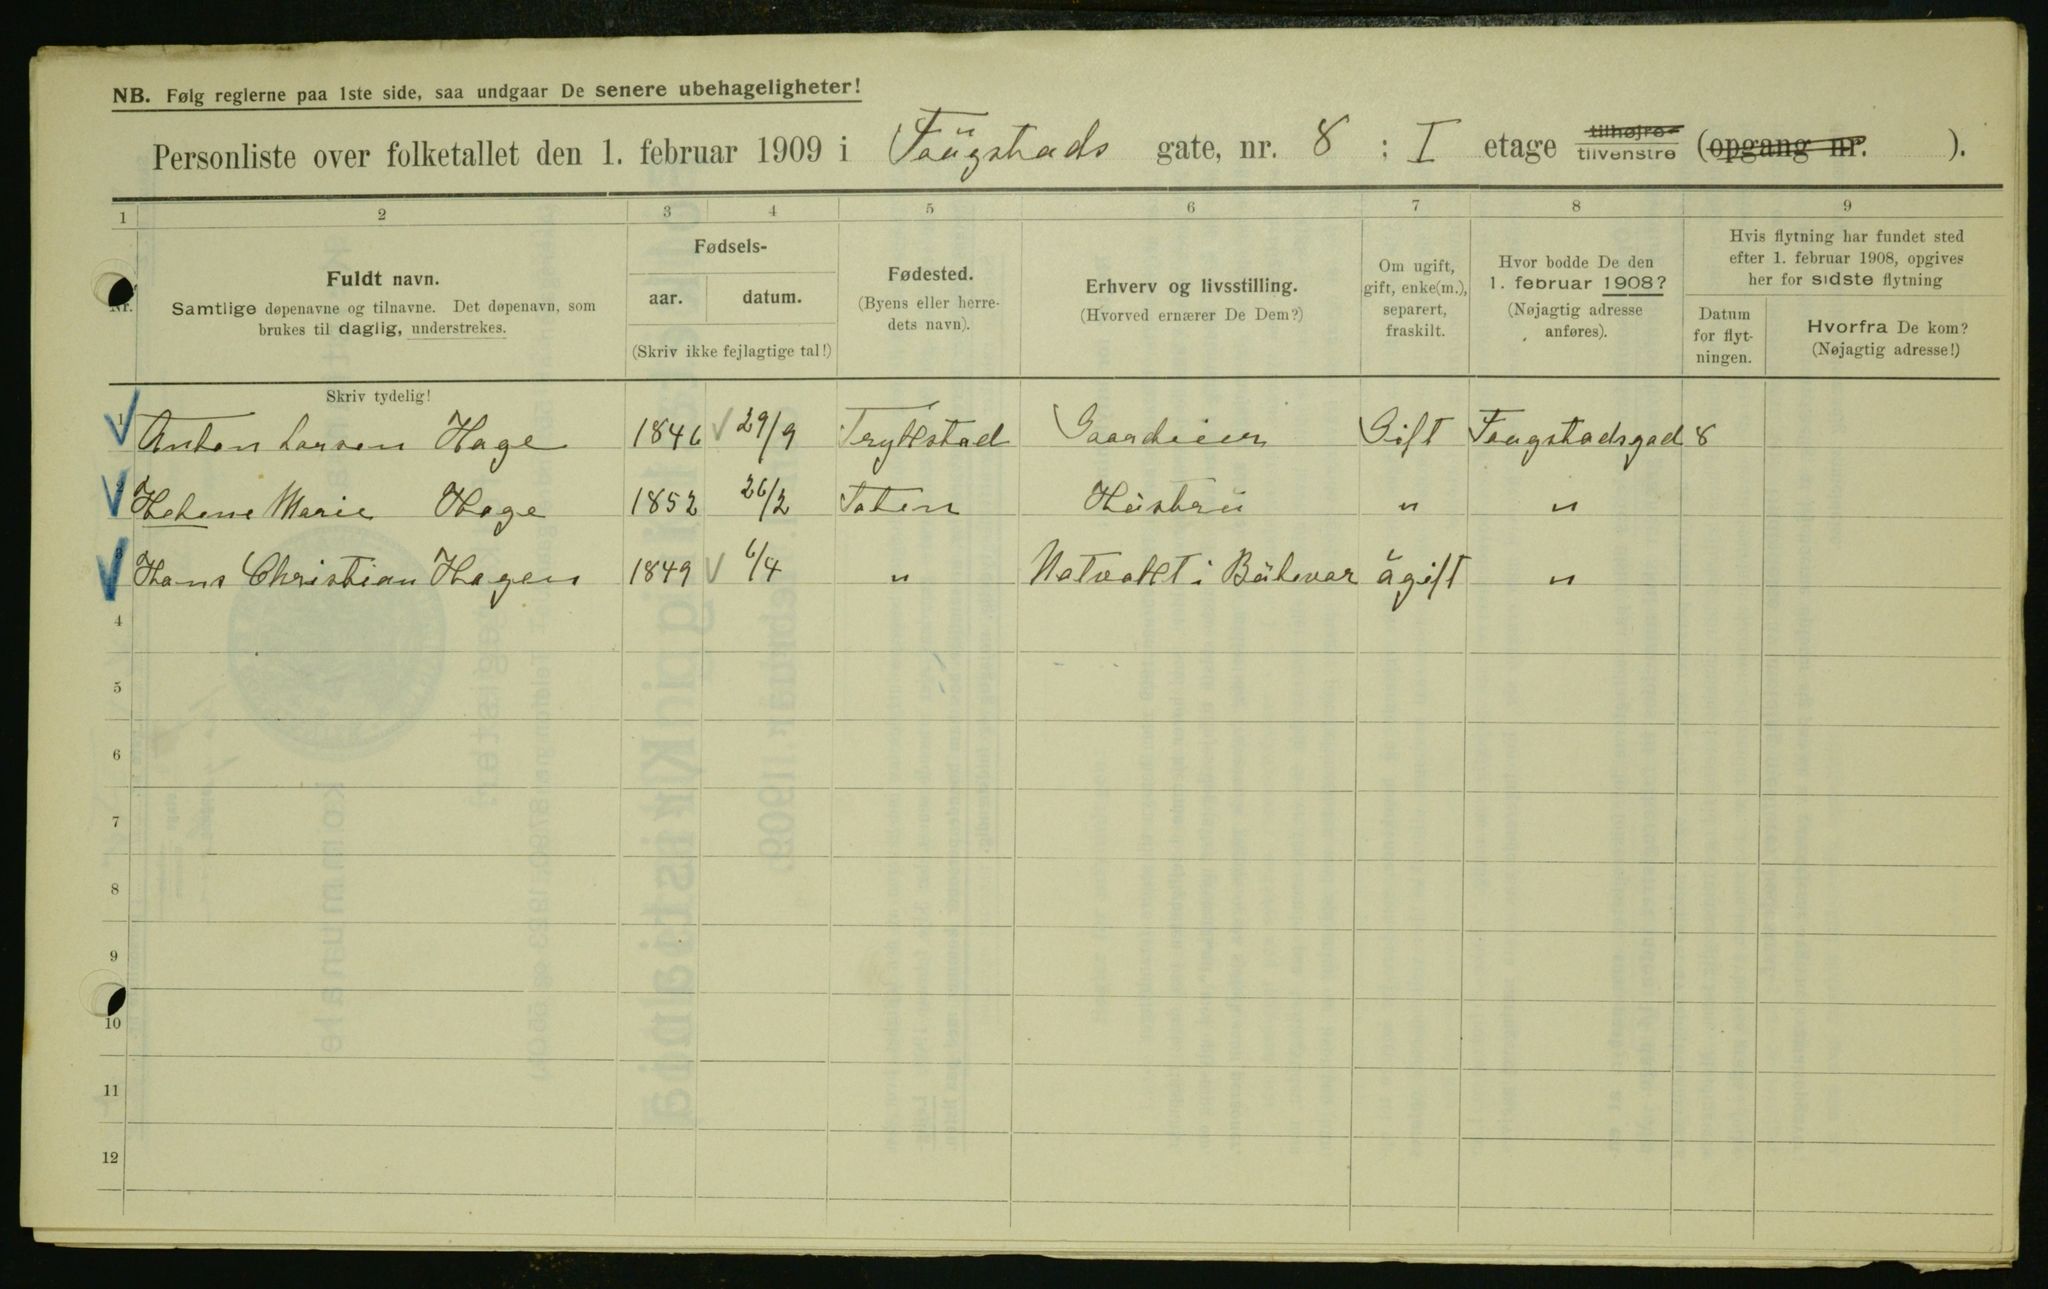 NB. Følg reglerne paa 1ste side, saa undgaar De senere ubehageligheter!
Personliste over folketallet den 1. februar 1909 i Faugstads gate, nr. 8 : I etage tilhøjre tilvenstre (opgang nr. ).
1 2 3 4 5 6 7 8 9
Nr.
Fuldt navn.
Samtlige døpenavne og tilnavne. Det døpenavn, som
brukes til daglig, understrekes.
Fødsels-
aar. datum.
(Skriv ikke fejlagtige tal!)
Fødested.
(Byens eller herre-
dets navn).
Erhverv og livsstilling.
(Hvorved ernærer De Dem?)
Om ugift,
gift, enke(m.),
separert,
fraskilt.
Hvor bodde De den
1. februar 1908?
(Nøjagtig adresse
anføres).
Hvis flytning har fundet sted
efter 1. februar 1908, opgives
her for sidste flytning
Datum
for flyt-
ningen.
Hvorfra De kom?
(Nøjagtig adresse!)
Skriv tydelig!
1 Anton Larsen Hage 1846 29/9 Trykstad Gaardeier Gift Faugstadsgad 8
2 Helene Marie Hage 1852 26/2 Toten Hustru " "
3 Hans Christian Hagen 1849 6/4 " Natvakt i ugift "
4
5
6
7
8
9
10
11
12